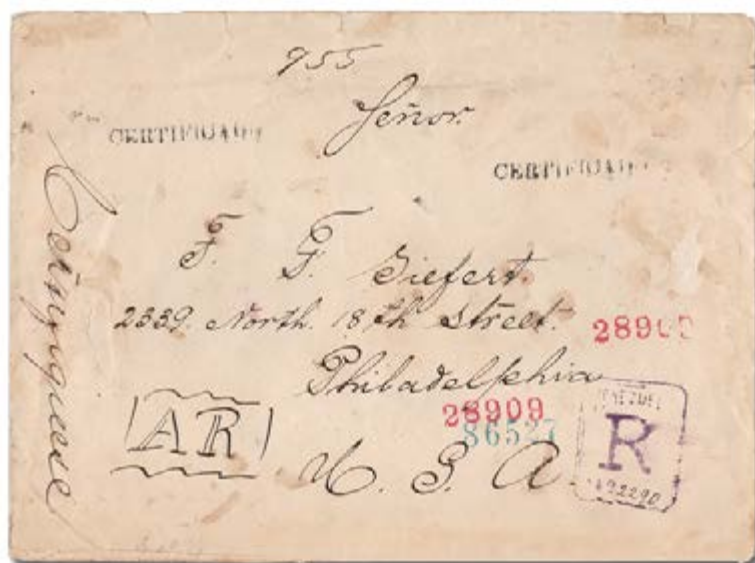 955
Señor.
CERTIFICADO
CERTIFICADO
F. F. Siefert.
2339. North. 18th Street.
28909
Philadelphia
28909
86527
AR
U. S. A
R